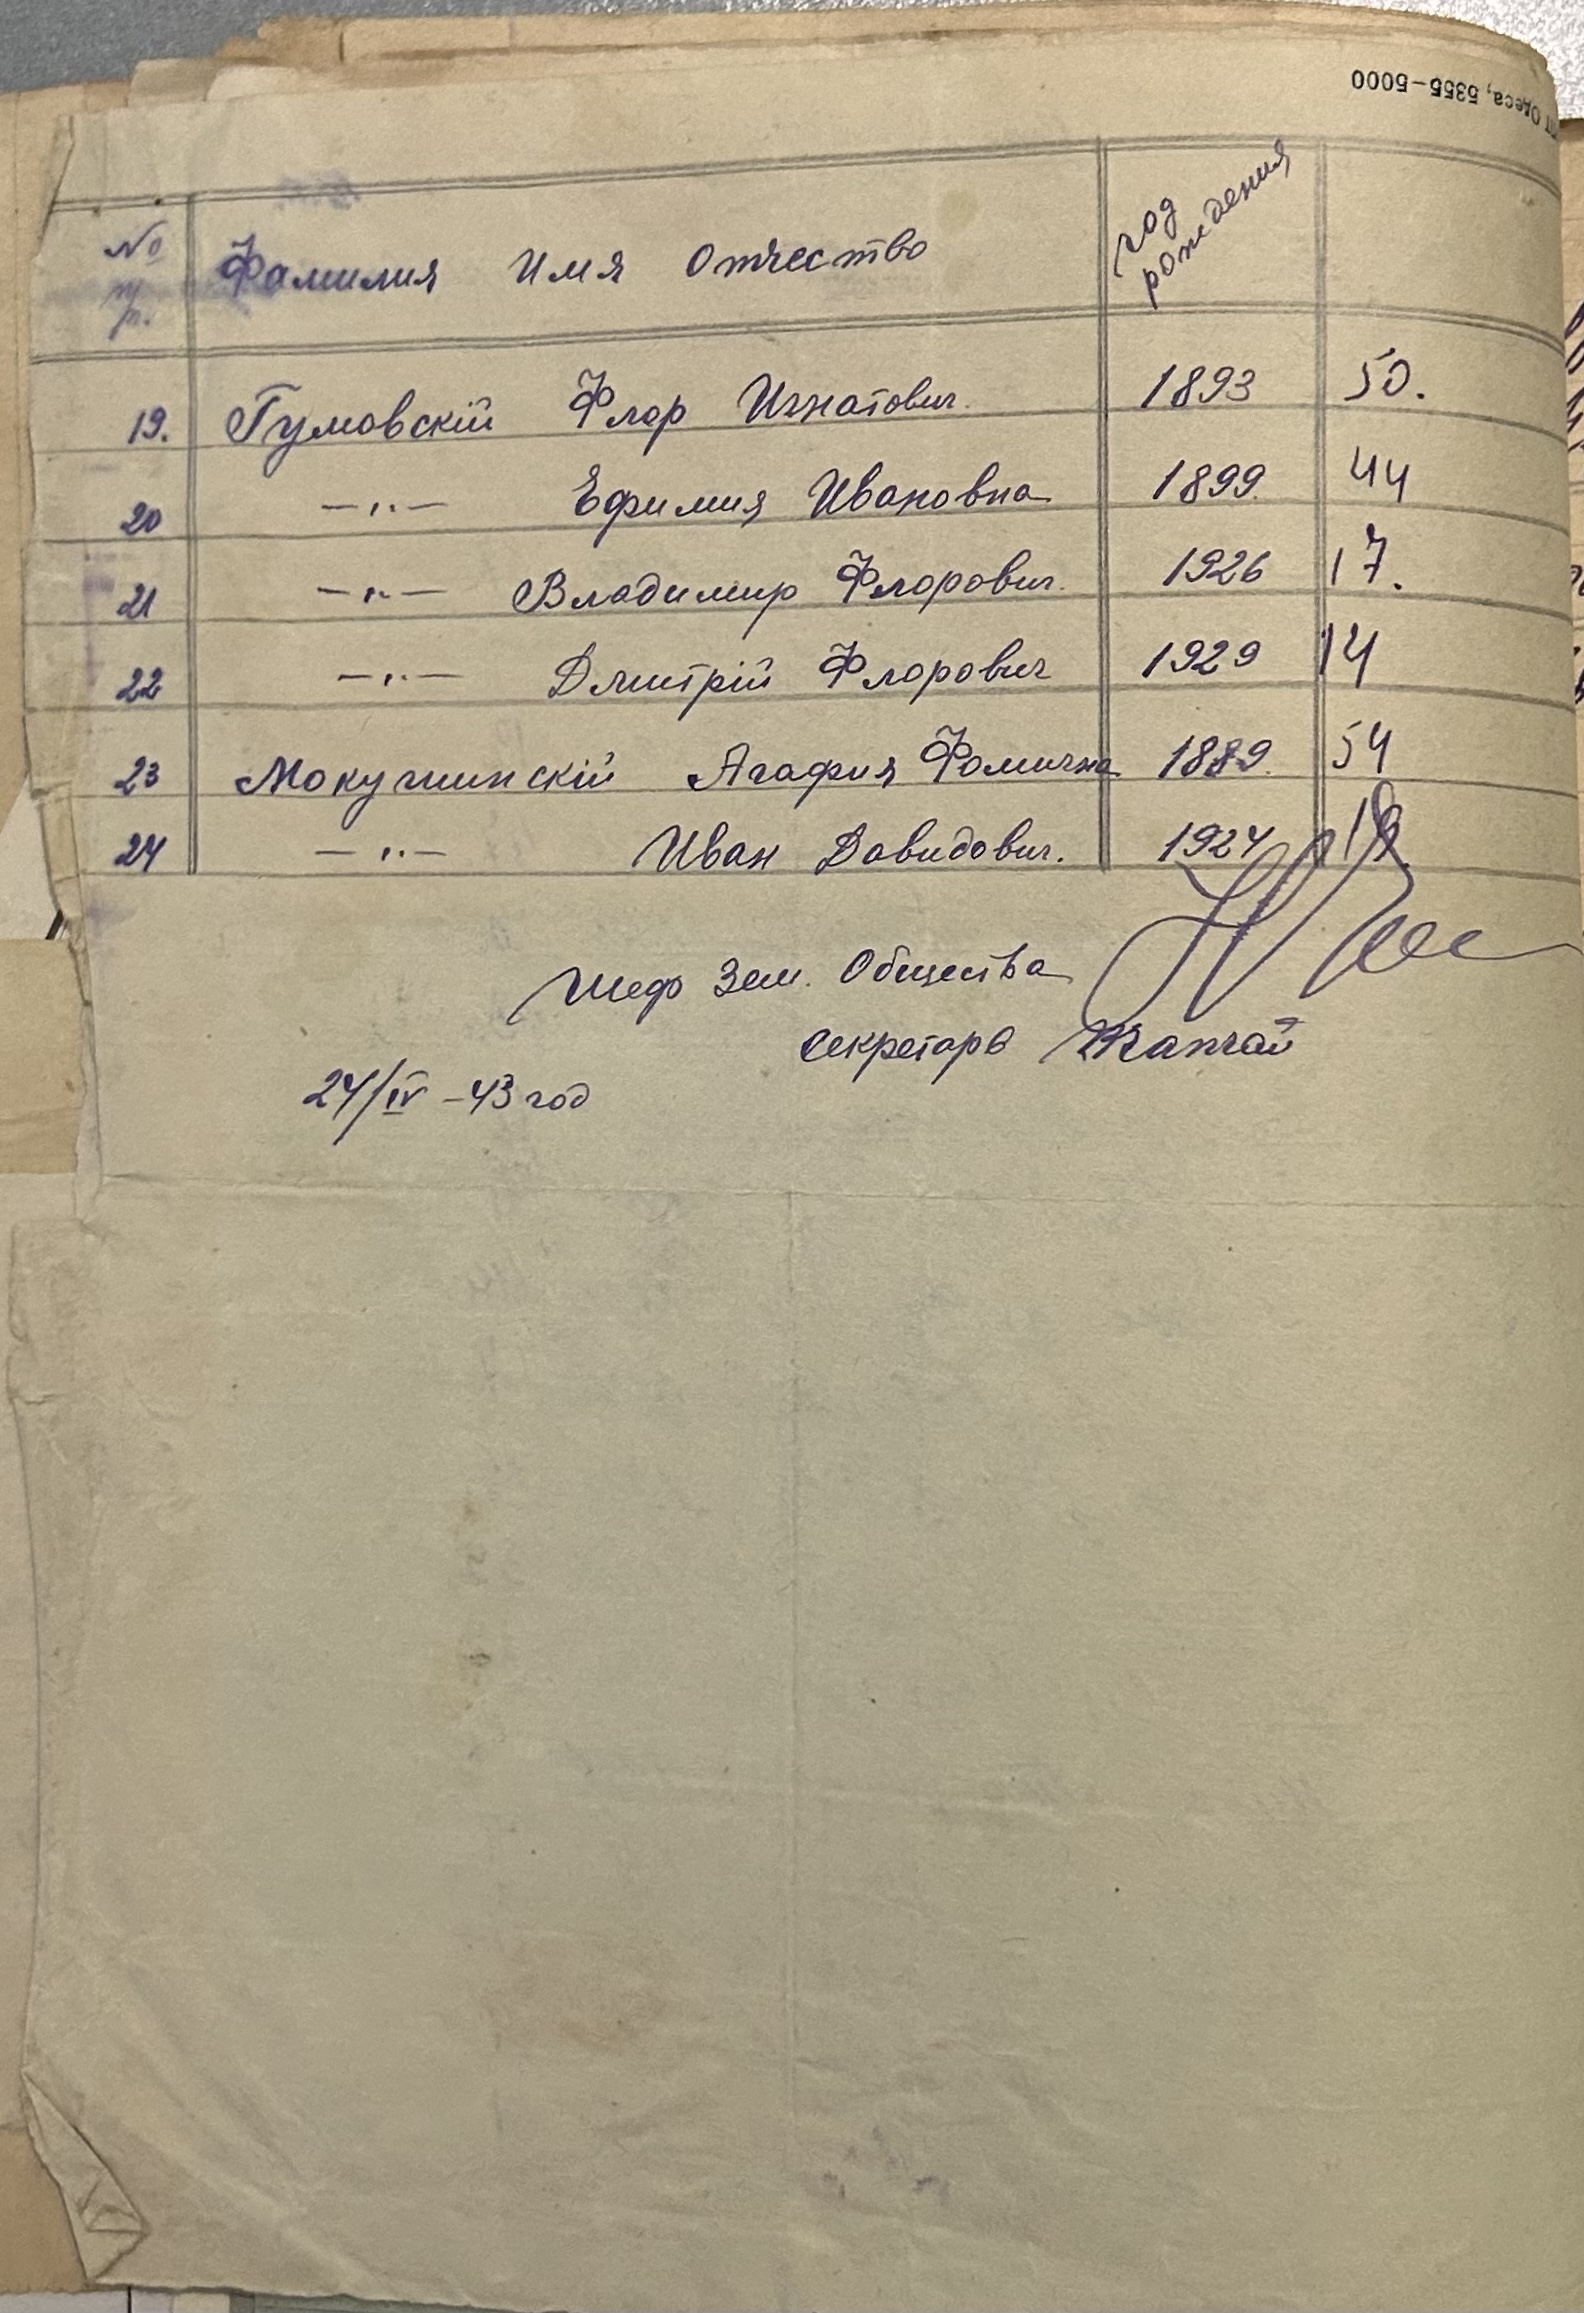 Одеса, 5355–5000
№ п/п. Фамилия Имя Отчество год рождения
19. Гумовскій Флор Игнатович. 1893 50.
20 —„— Ефимия Ивановна 1899. 44
21 —„— Владимир Флорович. 1926 17.
22 —„— Дмитрій Флорович 1929 14
23 Мокушинскій Агафия Фомична 1889. 54
24 —„— Иван Давидович. 1924 19
Шеф Зем. Общества
Секретарь
24/IV –43 год